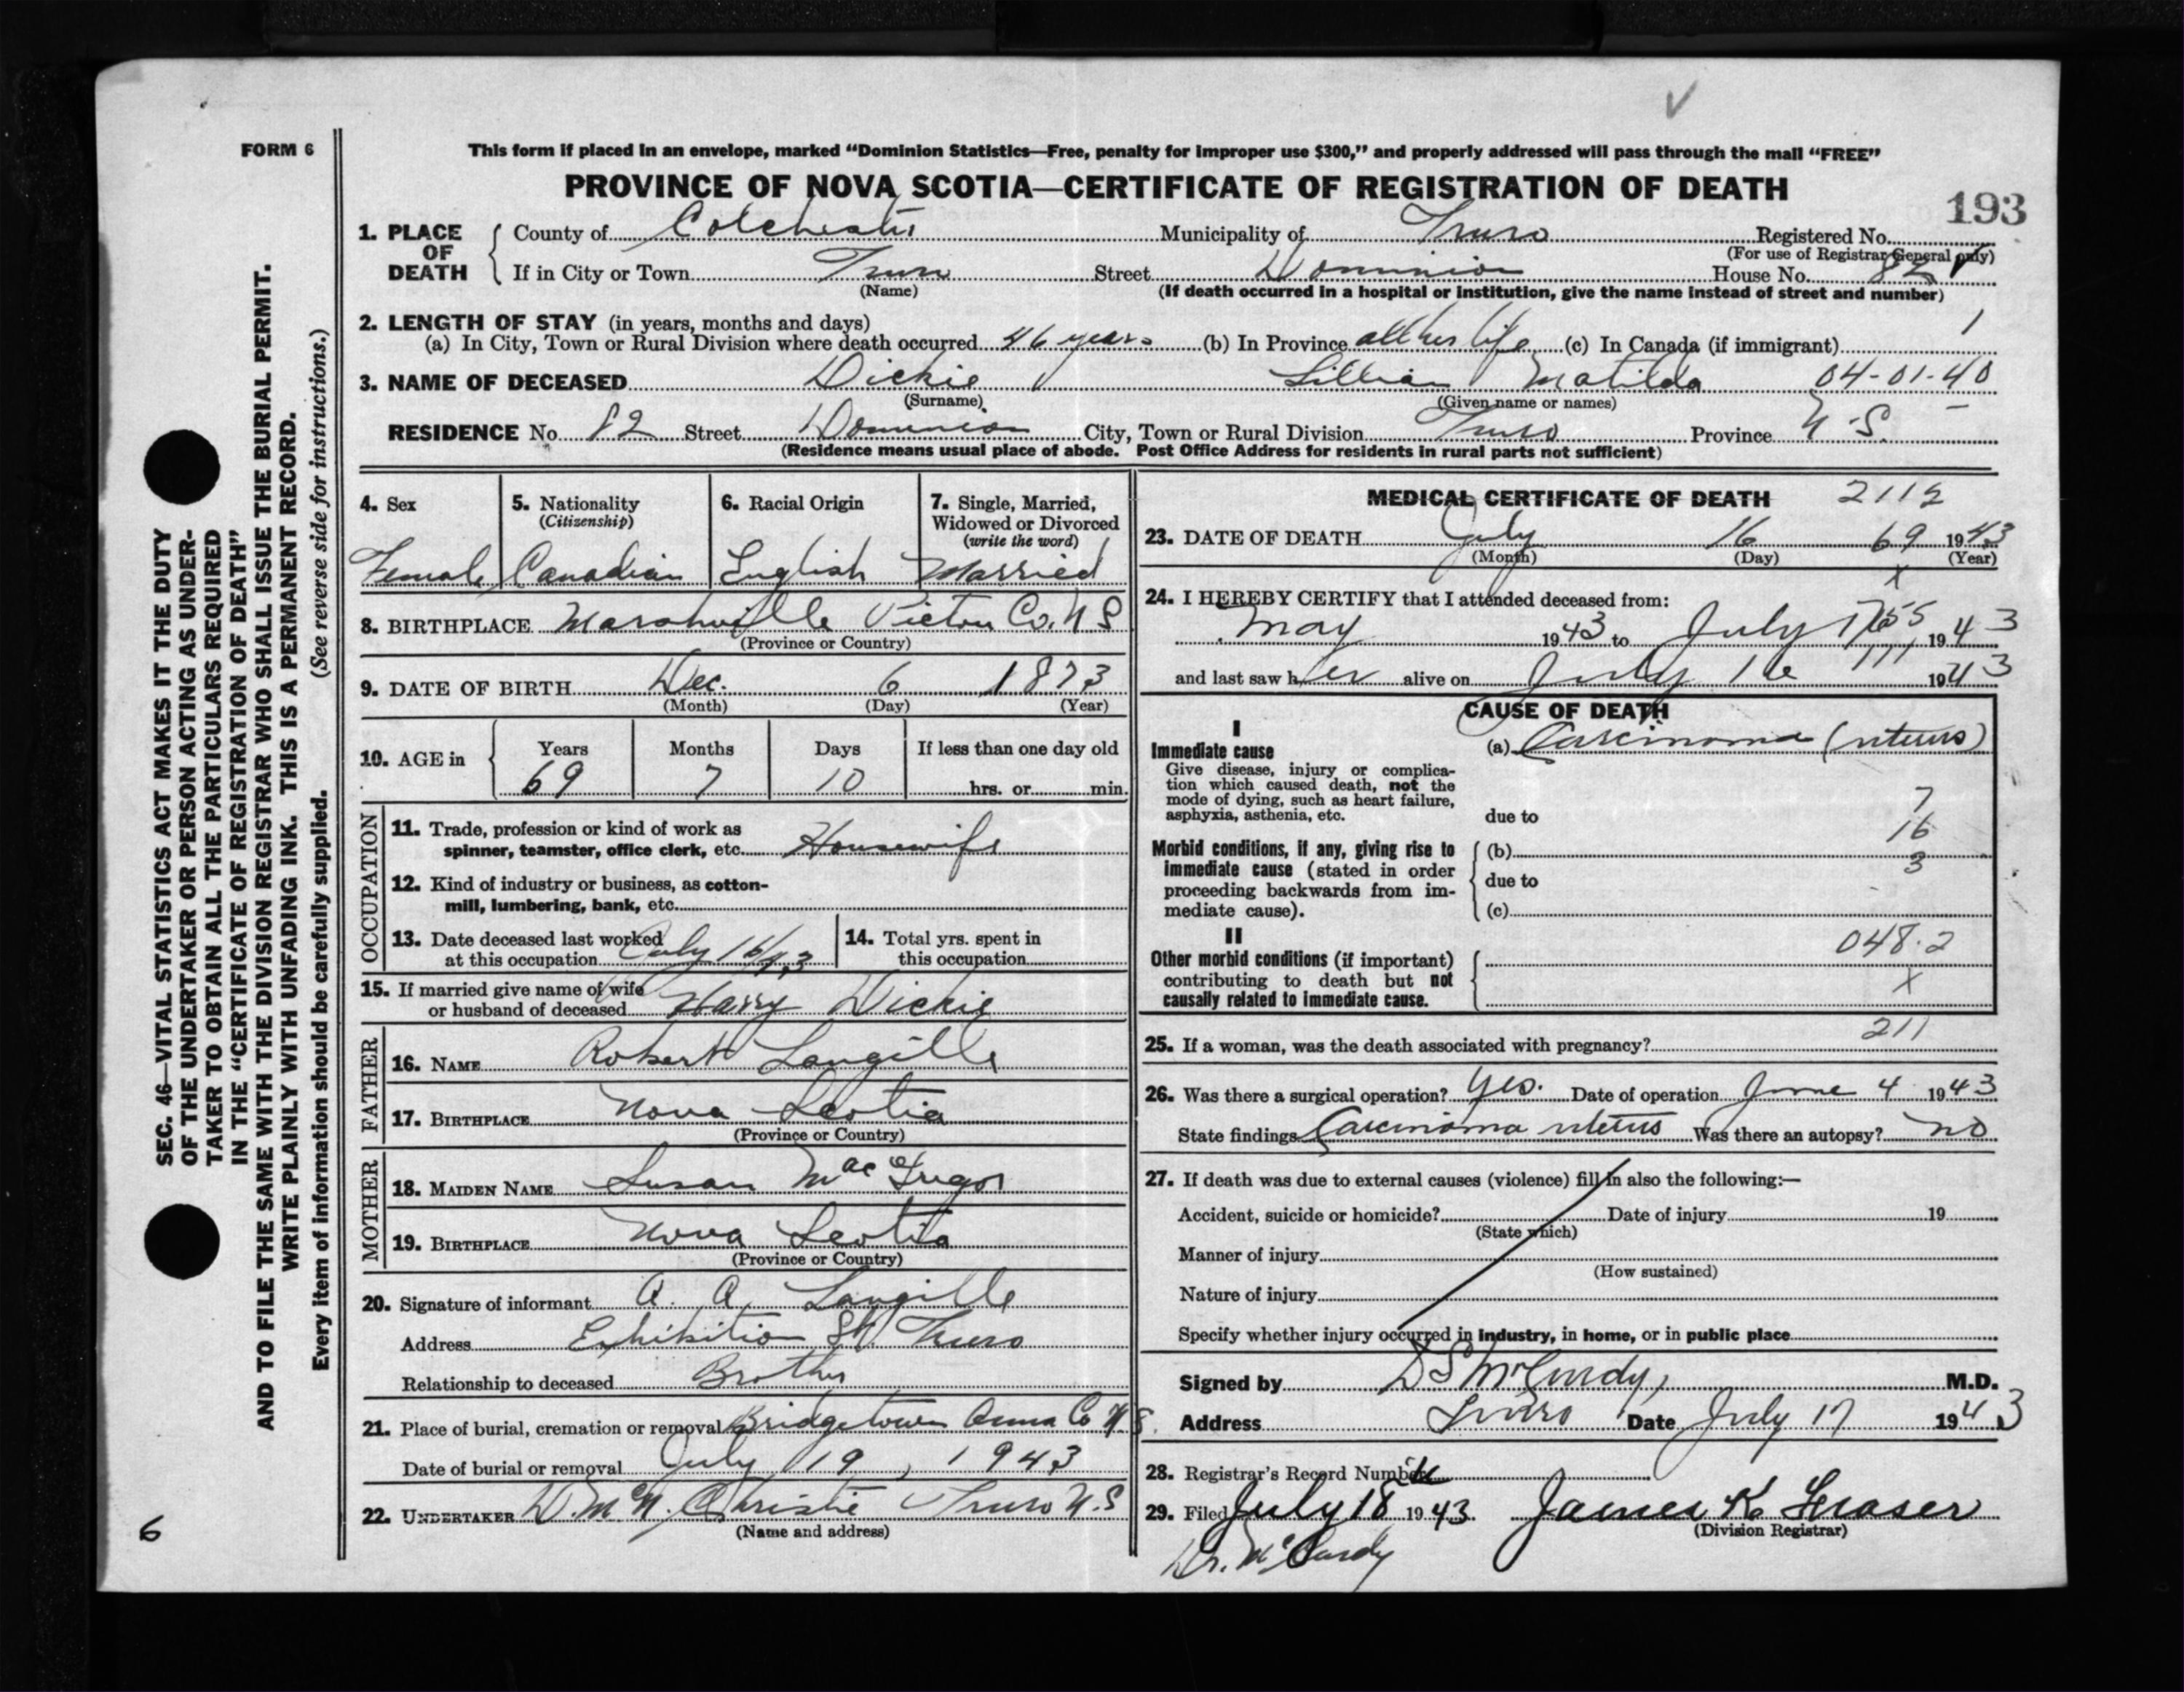 FORM 6
This form if placed in an envelope, marked “Dominion Statistics—Free, penalty for improper use $300,” and properly addressed will pass through the mail “FREE”
PROVINCE OF NOVA SCOTIA—CERTIFICATE OF REGISTRATION OF DEATH
193
1. PLACE OF DEATH
County of Colchester Municipality of Truro Registered No.
(For use of Registrar General only)
If in City or Town Truro Street Dominion House No. 82
(Name) (If death occurred in a hospital or institution, give the name instead of street and number)
2. LENGTH OF STAY (in years, months and days)
1
(a) In City, Town or Rural Division where death occurred 46 years (b) In Province all her life (c) In Canada (if immigrant)
3. NAME OF DECEASED Dickie Lillian Matilda 04-01-40
(Surname) (Given name or names)
RESIDENCE No. 82 Street Dominion City, Town or Rural Division Truro Province N.S.
(Residence means usual place of abode. Post Office Address for residents in rural parts not sufficient)
4. Sex
Female
5. Nationality
(Citizenship)
Canadian
6. Racial Origin
English
7. Single, Married,
Widowed or Divorced
(write the word)
Married
8. BIRTHPLACE Marshville Pictou Co. N S
(Province or Country)
9. DATE OF BIRTH Dec. 6 1873
(Month) (Day) (Year)
10. AGE in
Years Months Days If less than one day old
69 7 10 hrs. or min.
OCCUPATION
11. Trade, profession or kind of work as
spinner, teamster, office clerk, etc. Housewife
12. Kind of industry or business, as cotton-
mill, lumbering, bank, etc.
13. Date deceased last worked
at this occupation July 16/43
14. Total yrs. spent in
this occupation
15. If married give name of wife
or husband of deceased Harry Dickie
FATHER
16. NAME Robert Langille
17. BIRTHPLACE Nova Scotia
(Province or Country)
MOTHER
18. MAIDEN NAME Susan MacGregor
19. BIRTHPLACE Nova Scotia
(Province or Country)
20. Signature of informant A. A. Langille
Address Exhibition St. Truro
Relationship to deceased Brother
21. Place of burial, cremation or removal Bridgetown Anna Co N S.
Date of burial or removal July 19, 1943
22. UNDERTAKER D. McN. Christie Truro N.S
(Name and address)
MEDICAL CERTIFICATE OF DEATH 2112
23. DATE OF DEATH July 16 69 1943
(Month) (Day) (Year)
x
24. I HEREBY CERTIFY that I attended deceased from:
May 1943 to July 1943
and last saw her alive on July 16 1943
CAUSE OF DEATH
I
Immediate cause
Give disease, injury or complica-
tion which caused death, not the
mode of dying, such as heart failure,
asphyxia, asthenia, etc.
(a) Carcinoma (uterus)
7
due to
16
Morbid conditions, if any, giving rise to
immediate cause (stated in order
proceeding backwards from im-
mediate cause).
(b)
3
due to
(c)
II
Other morbid conditions (if important)
contributing to death but not
causally related to immediate cause.
048.2
X
211
25. If a woman, was the death associated with pregnancy?
26. Was there a surgical operation? yes. Date of operation June 4 1943
State findings Carcinoma uterus Was there an autopsy? no
27. If death was due to external causes (violence) fill in also the following:—
Accident, suicide or homicide? Date of injury 19
(State which)
Manner of injury
(How sustained)
Nature of injury
Specify whether injury occurred in industry, in home, or in public place
Signed by D S McCurdy, M.D.
Address Truro Date July 17 1943
28. Registrar's Record Number
29. Filed July 18th 1943 James K Fraser
(Division Registrar)
Dr. McCurdy
SEC. 46—VITAL STATISTICS ACT MAKES IT THE DUTY
OF THE UNDERTAKER OR PERSON ACTING AS UNDER-
TAKER TO OBTAIN ALL THE PARTICULARS REQUIRED
IN THE “CERTIFICATE OF REGISTRATION OF DEATH”
AND TO FILE THE SAME WITH THE DIVISION REGISTRAR WHO SHALL ISSUE THE BURIAL PERMIT.
WRITE PLAINLY WITH UNFADING INK. THIS IS A PERMANENT RECORD.
Every item of information should be carefully supplied. (See reverse side for instructions.)
6